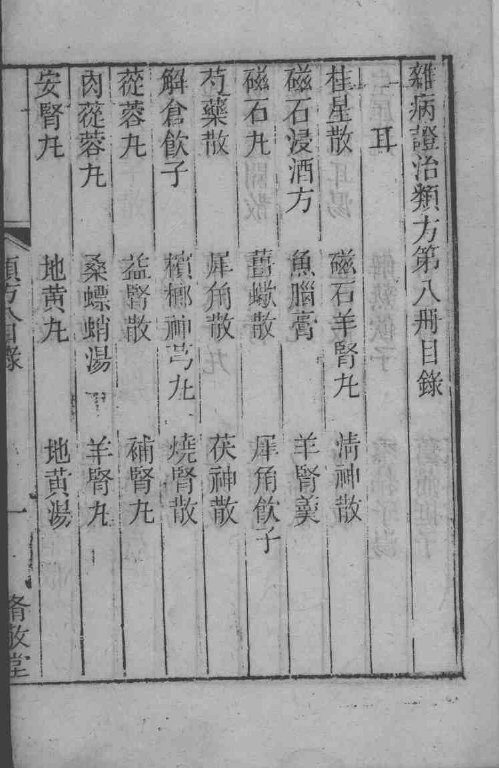 雜病證治類方第八冊目錄
耳
桂星散　磁石羊腎丸　清神散
磁石浸酒方　魚腦膏　羊腎羹
磁石丸　舊蠍散　犀角飲子
芍藥散　犀角散　茯神散
解倉飲子　檳榔神芎丸　燒腎散
蓯蓉丸　益腎散　補腎丸
肉蓯蓉丸　桑螵蛸湯　羊腎丸
安腎丸　地黃丸　地黃湯
類方八目錄　一　脩敬堂